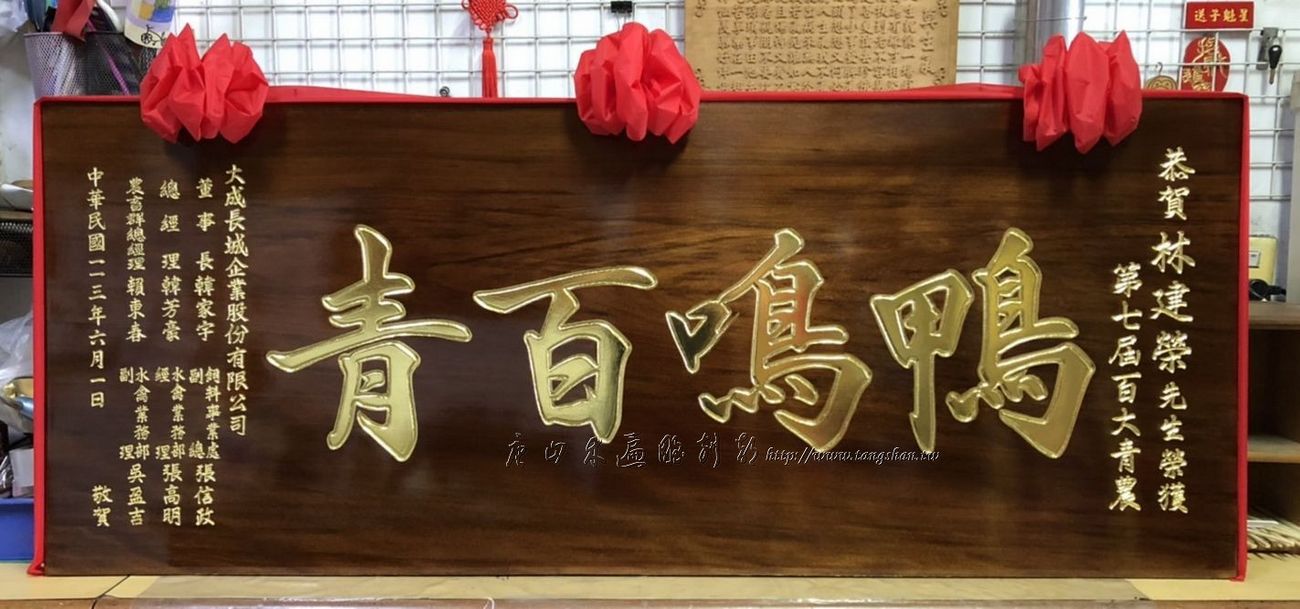 恭賀林建榮先生榮獲
第七屆百大青農
鴨鳴百青
大成長城企業股份有限公司
董事長韓家宇
飼料事業處副總張信政
總經理韓芳豪
水禽業務部經理張高明
農畜群總經理賴東春
水禽業務部副理吳盈吉
中華民國一一三年六月一日
敬賀
http://www.tangshan.tw
送子魁星